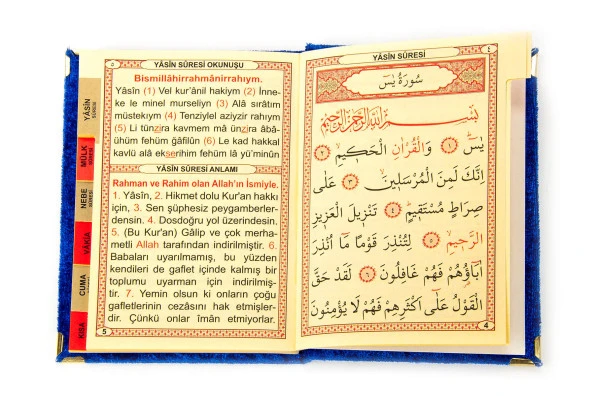 ٥
YÂSÎN SÛRESİ OKUNUŞU
Bismillâhirrahmânirrahıym.
Yâsîn (1) Vel kur’ânil hakiym (2) İnne-
ke le minel murseliyn (3) Alâ sırâtım
müstekıym (4) Tenziylel aziyzir rahıym
(5) Li tünzira kavmem mâ ünzira âbâ-
ühüm fehüm ğâfilûn (6) Le kad hakkal
kavlü alâ ekserihim fehüm lâ yü’minûn
YÂSÎN SÛRESİ ANLAMI
Rahman ve Rahim olan Allah’ın İsmiyle.
1. Yâsîn, 2. Hikmet dolu Kur'an hakkı
için, 3. Sen şüphesiz peygamberler-
densin. 4. Dosdoğru yol üzerindesin.
5. (Bu Kur'an) Gâlip ve çok merha-
metli Allah tarafından indirilmiştir. 6.
Babaları uyarılmamış, bu yüzden
kendileri de gaflet içinde kalmış bir
toplumu uyarman için indirilmiş-
tir. 7. Yemin olsun ki onların çoğu
gafletlerinin cezasını hak etmişler-
dir. Çünkü onlar îmân etmiyorlar.
5
YÂSÎN SÛRESİ
MÜLK SÛRESİ
NEBE SÛRESİ
VÂKIA
CUMA
KISA
YÂSÎN SÛRESİ
٤
سُورَةُ يٰسٓ
بِسْمِ اللّٰهِ الرَّحْمٰنِ الرَّحِيمِ
يٰسٓ ﴿١﴾ وَالْقُرْاٰنِ الْحَكِيمِ ﴿٢﴾
اِنَّكَ لَمِنَ الْمُرْسَلِينَ ﴿٣﴾ عَلٰى
صِرَاطٍ مُسْتَقِيمٍ ﴿٤﴾ تَنْزِيلَ الْعَزِيزِ
الرَّحِيمِ ﴿٥﴾ لِتُنْذِرَ قَوْمًا مَا اُنْذِرَ
اٰبَاؤُهُمْ فَهُمْ غَافِلُونَ ﴿٦﴾ لَقَدْ حَقَّ
الْقَوْلُ عَلٰى اَكْثَرِهِمْ فَهُمْ لَا يُؤْمِنُونَ
4